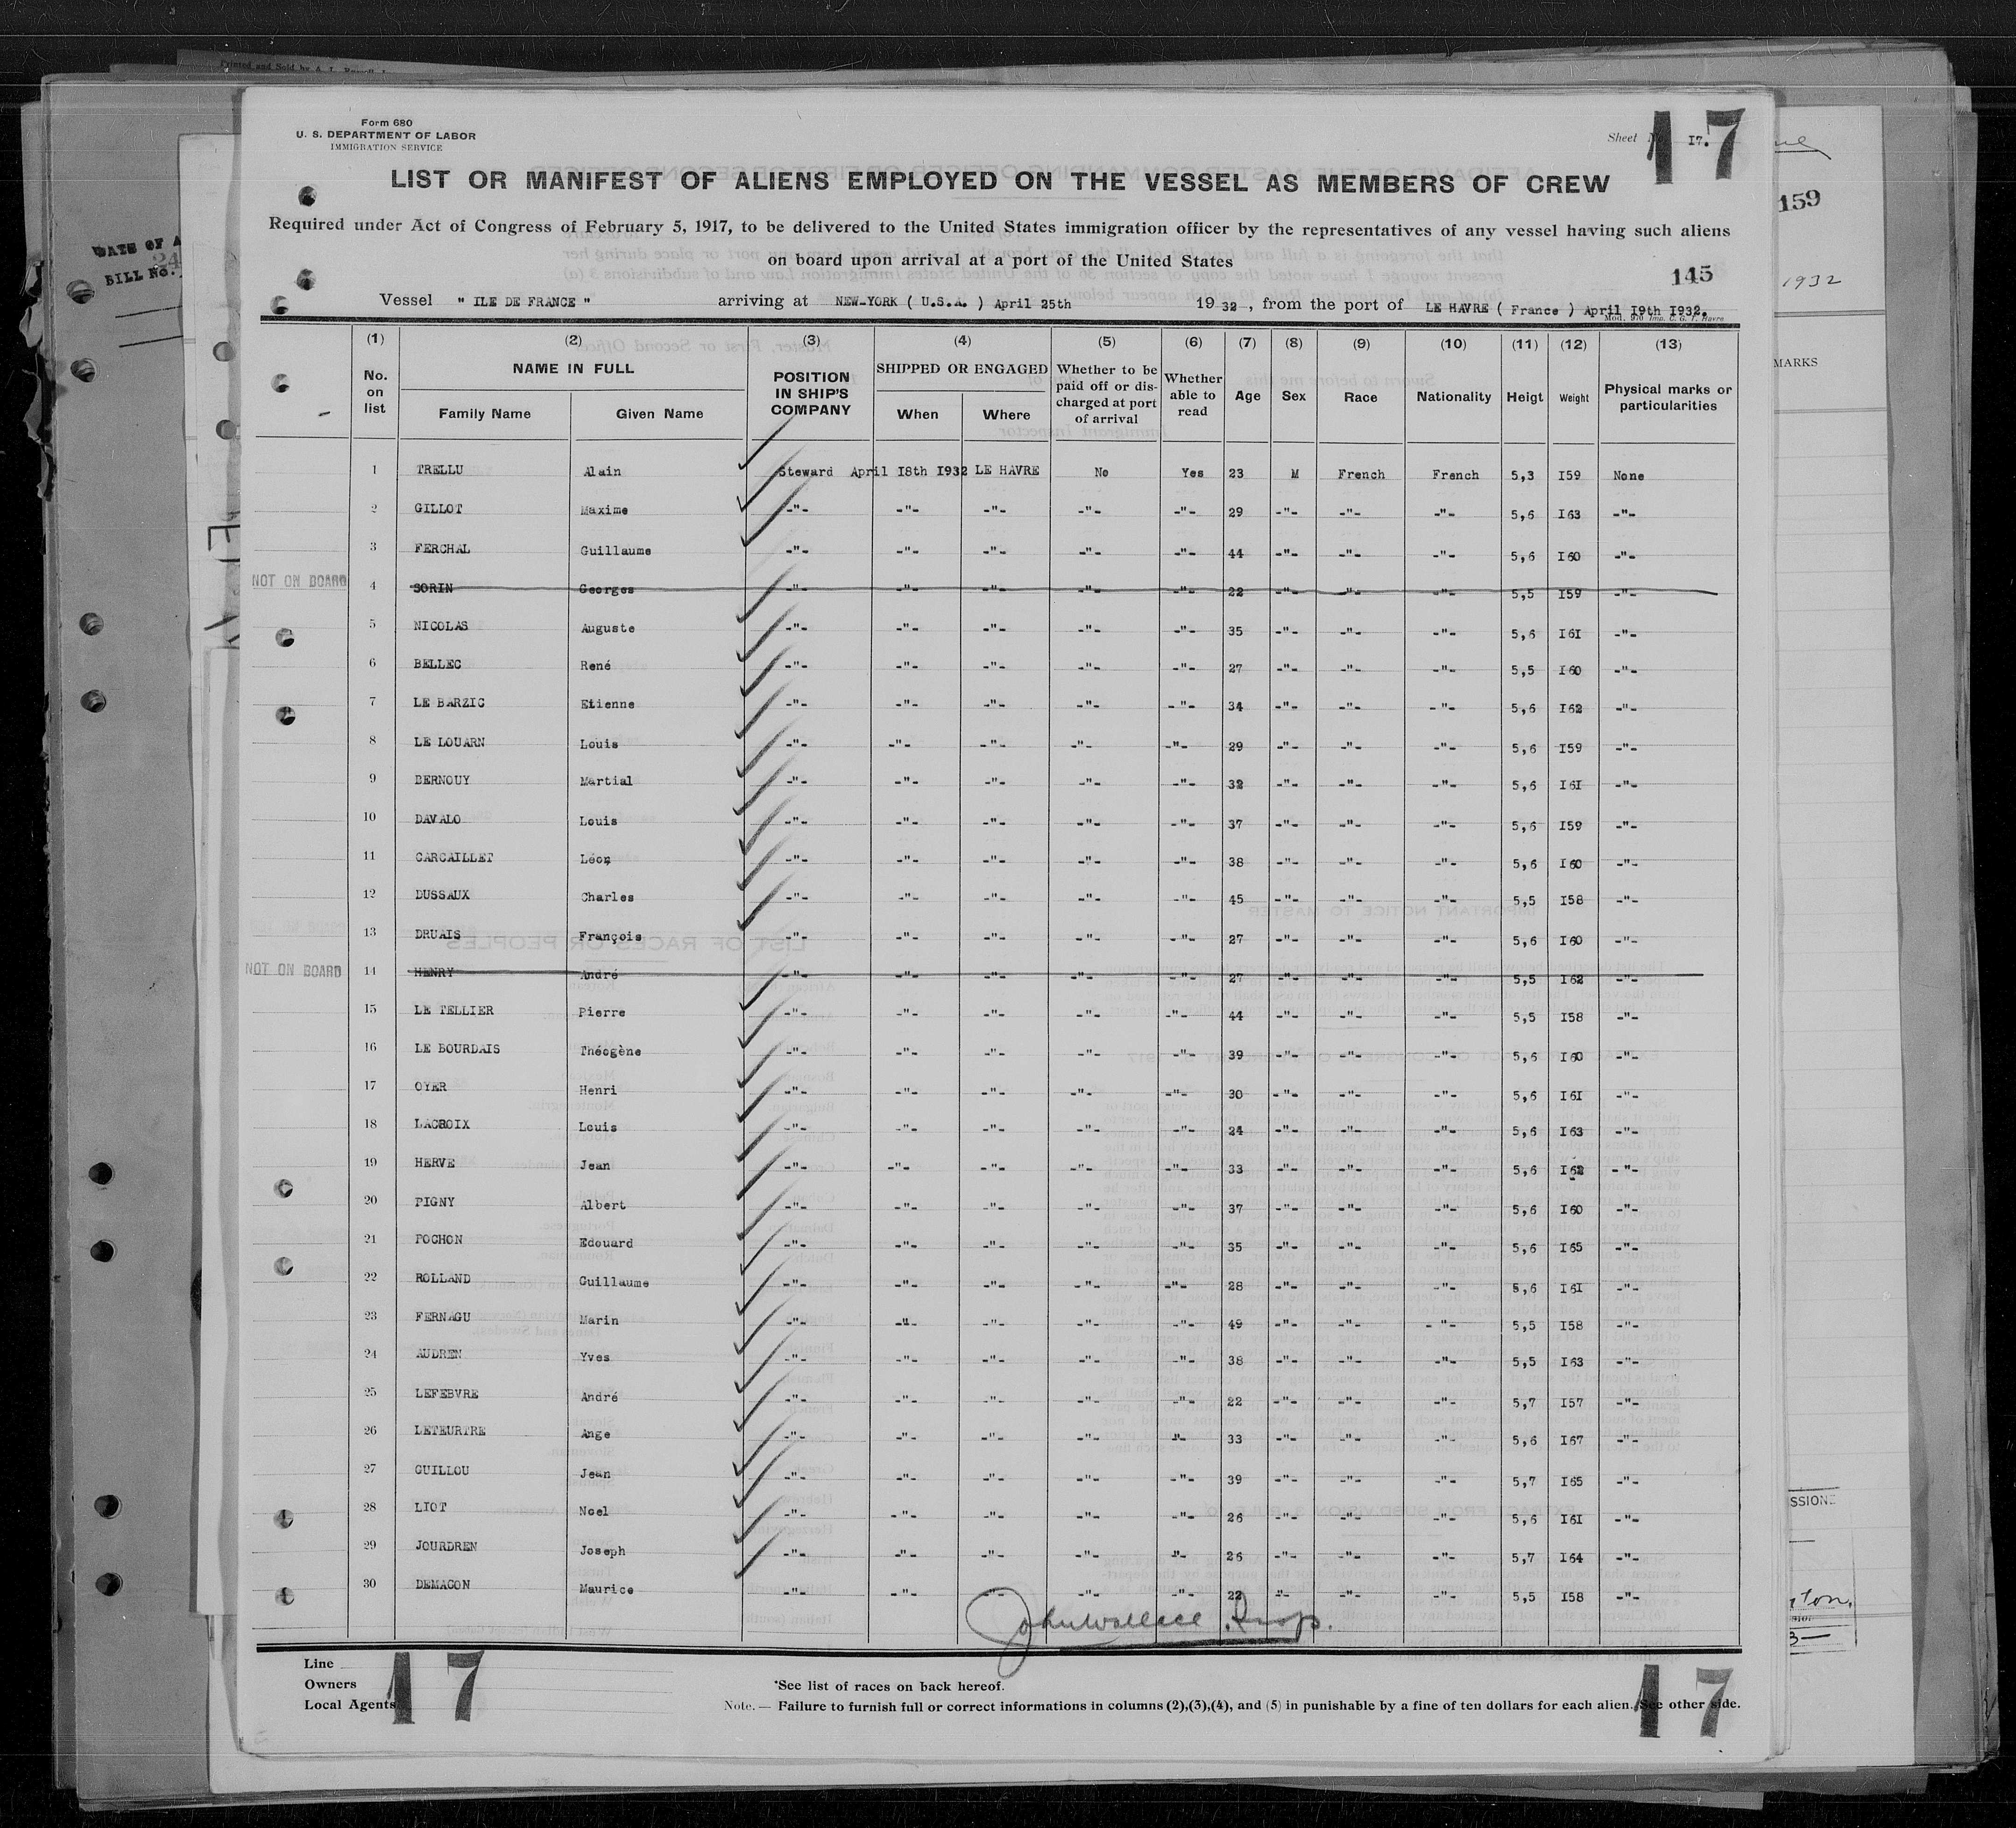 Form 680
U. S. DEPARTMENT OF LABOR
IMMIGRATION SERVICE
Sheet No. I7.
17
LIST OR MANIFEST OF ALIENS EMPLOYED ON THE VESSEL AS MEMBERS OF CREW
Required under Act of Congress of February 5, 1917, to be delivered to the United States immigration officer by the representatives of any vessel having such aliens
on board upon arrival at a port of the United States
145
Vessel " ILE DE FRANCE " arriving at NEW-YORK ( U.S.A. ) April 25th 1932, from the port of LE HAVRE ( France ) April I9th I932.
(1) (2) (3) (4) (5) (6) (7) (8) (9) (10) (11) (12) (13)
No. on list NAME IN FULL Family Name Given Name POSITION IN SHIP'S COMPANY SHIPPED OR ENGAGED When Where Whether to be paid off or dis-charged at port of arrival Whether able to read Age Sex Race Nationality Heigt Weight Physical marks or particularities
1 TRELLU Alain Steward April I8th I932 LE HAVRE No Yes 23 M French French 5,3 I59 None
2 GILLOT Maxime -"- -"- -"- -"- -"- 29 -"- -"- -"- 5,6 I63 -"-
3 FERCHAL Guillaume -"- -"- -"- -"- -"- 44 -"- -"- -"- 5,6 I60 -"-
NOT ON BOARD 4 SORIN Georges -"- -"- -"- -"- -"- 22 -"- -"- -"- 5,5 I59 -"-
5 NICOLAS Auguste -"- -"- -"- -"- -"- 35 -"- -"- -"- 5,6 I6I -"-
6 BELLEC René -"- -"- -"- -"- -"- 27 -"- -"- -"- 5,5 I60 -"-
7 LE BARZIC Etienne -"- -"- -"- -"- -"- 34 -"- -"- -"- 5,6 I62 -"-
8 LE LOUARN Louis -"- -"- -"- -"- -"- 29 -"- -"- -"- 5,6 I59 -"-
9 BERNOUY Martial -"- -"- -"- -"- -"- 32 -"- -"- -"- 5,6 I6I -"-
10 DAVALO Louis -"- -"- -"- -"- -"- 37 -"- -"- -"- 5,6 I59 -"-
11 CARCAILLET Léon -"- -"- -"- -"- -"- 38 -"- -"- -"- 5,6 I60 -"-
12 DUSSAUX Charles -"- -"- -"- -"- -"- 45 -"- -"- -"- 5,5 I58 -"-
13 DRUAIS François -"- -"- -"- -"- -"- 27 -"- -"- -"- 5,6 I60 -"-
NOT ON BOARD 14 HENRY André -"- -"- -"- -"- -"- 27 -"- -"- -"- 5,5 I62 -"-
15 LE TELLIER Pierre -"- -"- -"- -"- -"- 44 -"- -"- -"- 5,5 I58 -"-
16 LE BOURDAIS Théogène -"- -"- -"- -"- -"- 39 -"- -"- -"- 5,6 I60 -"-
17 OYER Henri -"- -"- -"- -"- -"- 30 -"- -"- -"- 5,6 I6I -"-
18 LACROIX Louis -"- -"- -"- -"- -"- 24 -"- -"- -"- 5,6 I63 -"-
19 HERVE Jean -"- -"- -"- -"- -"- 33 -"- -"- -"- 5,6 I62 -"-
20 PIGNY Albert -"- -"- -"- -"- -"- 37 -"- -"- -"- 5,6 I60 -"-
21 POCHON Edouard -"- -"- -"- -"- -"- 35 -"- -"- -"- 5,6 I65 -"-
22 ROLLAND Guillaume -"- -"- -"- -"- -"- 28 -"- -"- -"- 5,6 I6I -"-
23 FERNAGU Marin -"- -"- -"- -"- -"- 49 -"- -"- -"- 5,5 I58 -"-
24 AUDREN Yves -"- -"- -"- -"- -"- 38 -"- -"- -"- 5,5 I63 -"-
25 LEFEBVRE André -"- -"- -"- -"- -"- 22 -"- -"- -"- 5,7 I57 -"-
26 LETEURTRE Ange -"- -"- -"- -"- -"- 33 -"- -"- -"- 5,6 I67 -"-
27 GUILLOU Jean -"- -"- -"- -"- -"- 39 -"- -"- -"- 5,7 I65 -"-
28 LIOT Noel -"- -"- -"- -"- -"- 26 -"- -"- -"- 5,6 I6I -"-
29 JOURDREN Joseph -"- -"- -"- -"- -"- 26 -"- -"- -"- 5,7 I64 -"-
30 DEMACON Maurice -"- -"- -"- -"- -"- 22 -"- -"- -"- 5,5 I58 -"-
John Wallace Insp.
Line
Owners
Local Agents
17
*See list of races on back hereof.
Note. — Failure to furnish full or correct informations in columns (2),(3),(4), and (5) in punishable by a fine of ten dollars for each alien. See other side.
17
159
1932
MARKS
BILL No.